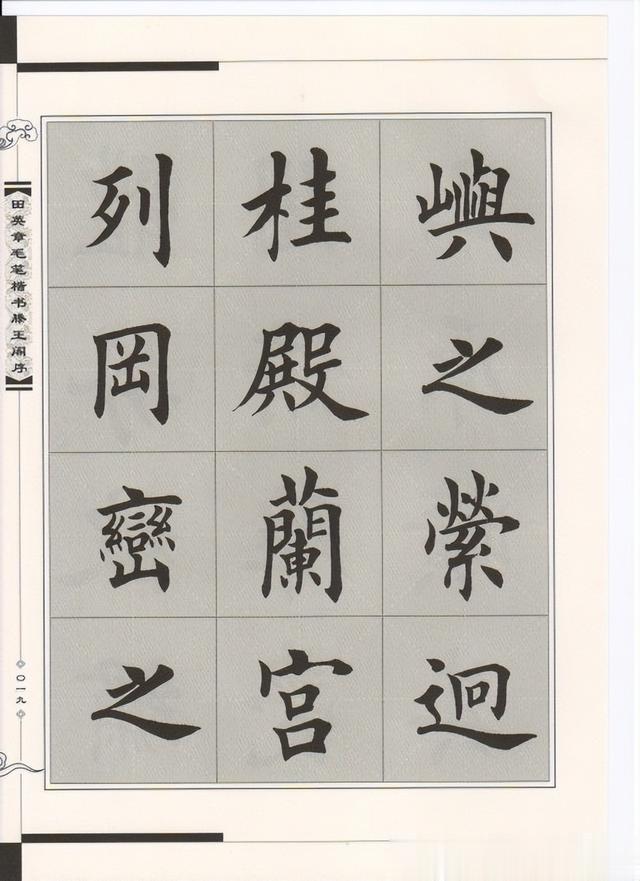 嶼之縈迴
桂殿蘭宮
列岡巒之
田英章毛笔楷书滕王阁序
〇一九